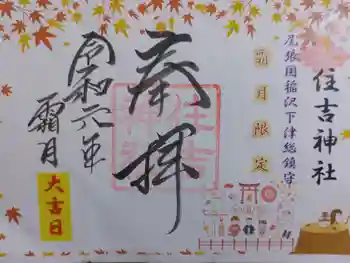 住吉神社
尾張国稲沢下津総鎮守
霜月限定
奉拝
住吉
神社
令和元年
霜月
大吉日